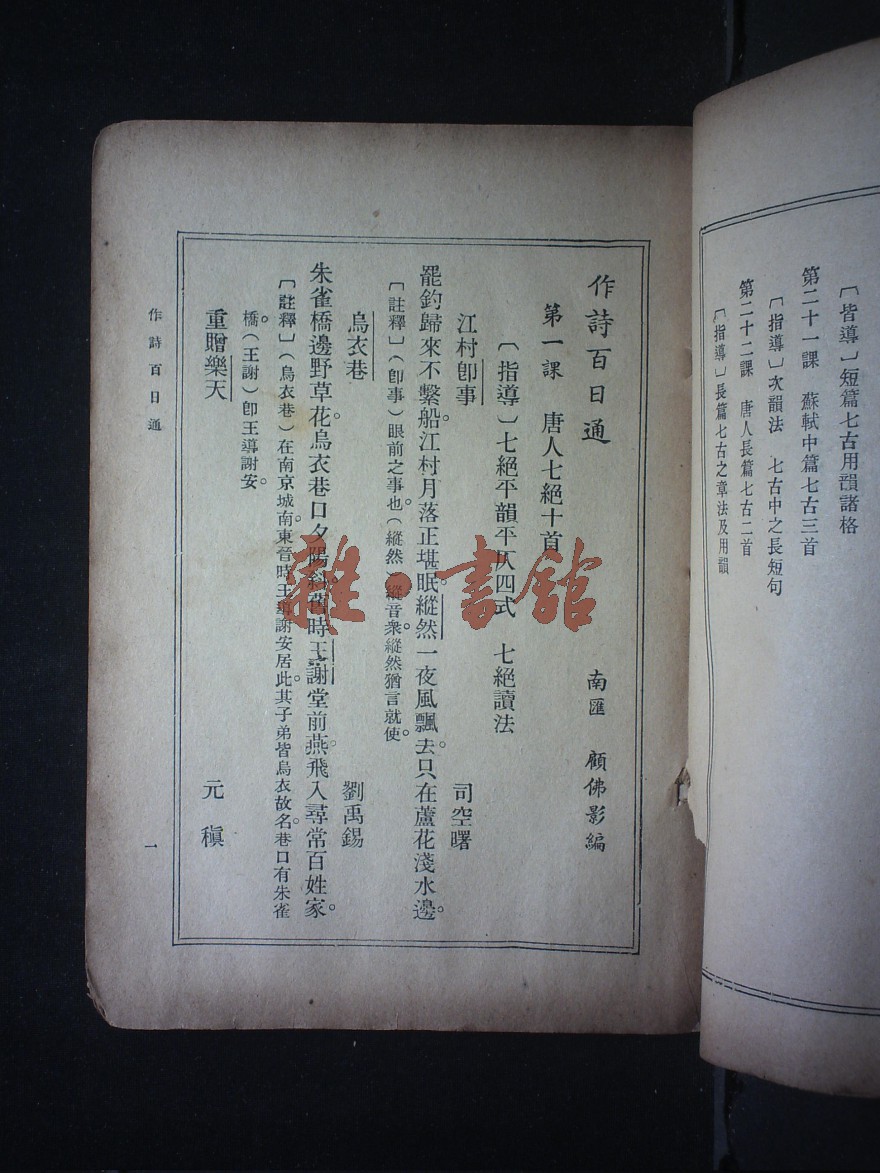 〔皆導〕短篇七古用韻諸格
第二十一課　蘇軾中篇七古三首
〔指導〕次韻法　七古中之長短句
第二十二課　唐人長篇七古二首
〔指導〕長篇七古之章法及用韻
作詩百日通
南匯　顧佛影編
第一課　唐人七絕十首
〔指導〕七絕平韻平仄四式　七絕讀法
江村卽事　司空曙
罷釣歸來不繫船。江村月落正堪眠。縱然一夜風飄去。只在蘆花淺水邊。
〔註釋〕（卽事）眼前之事也。（縱然）縱音衆。縱然猶言就使。
烏衣巷　劉禹錫
朱雀橋邊野草花。烏衣巷口夕陽斜。舊時王謝堂前燕。飛入尋常百姓家。
〔註釋〕（烏衣巷）在南京城南。東晉時王導謝安居此。其子弟皆烏衣故名。巷口有朱雀
橋。（王謝）卽王導謝安。
重贈樂天　元稹
作詩百日通
一
雜·書館